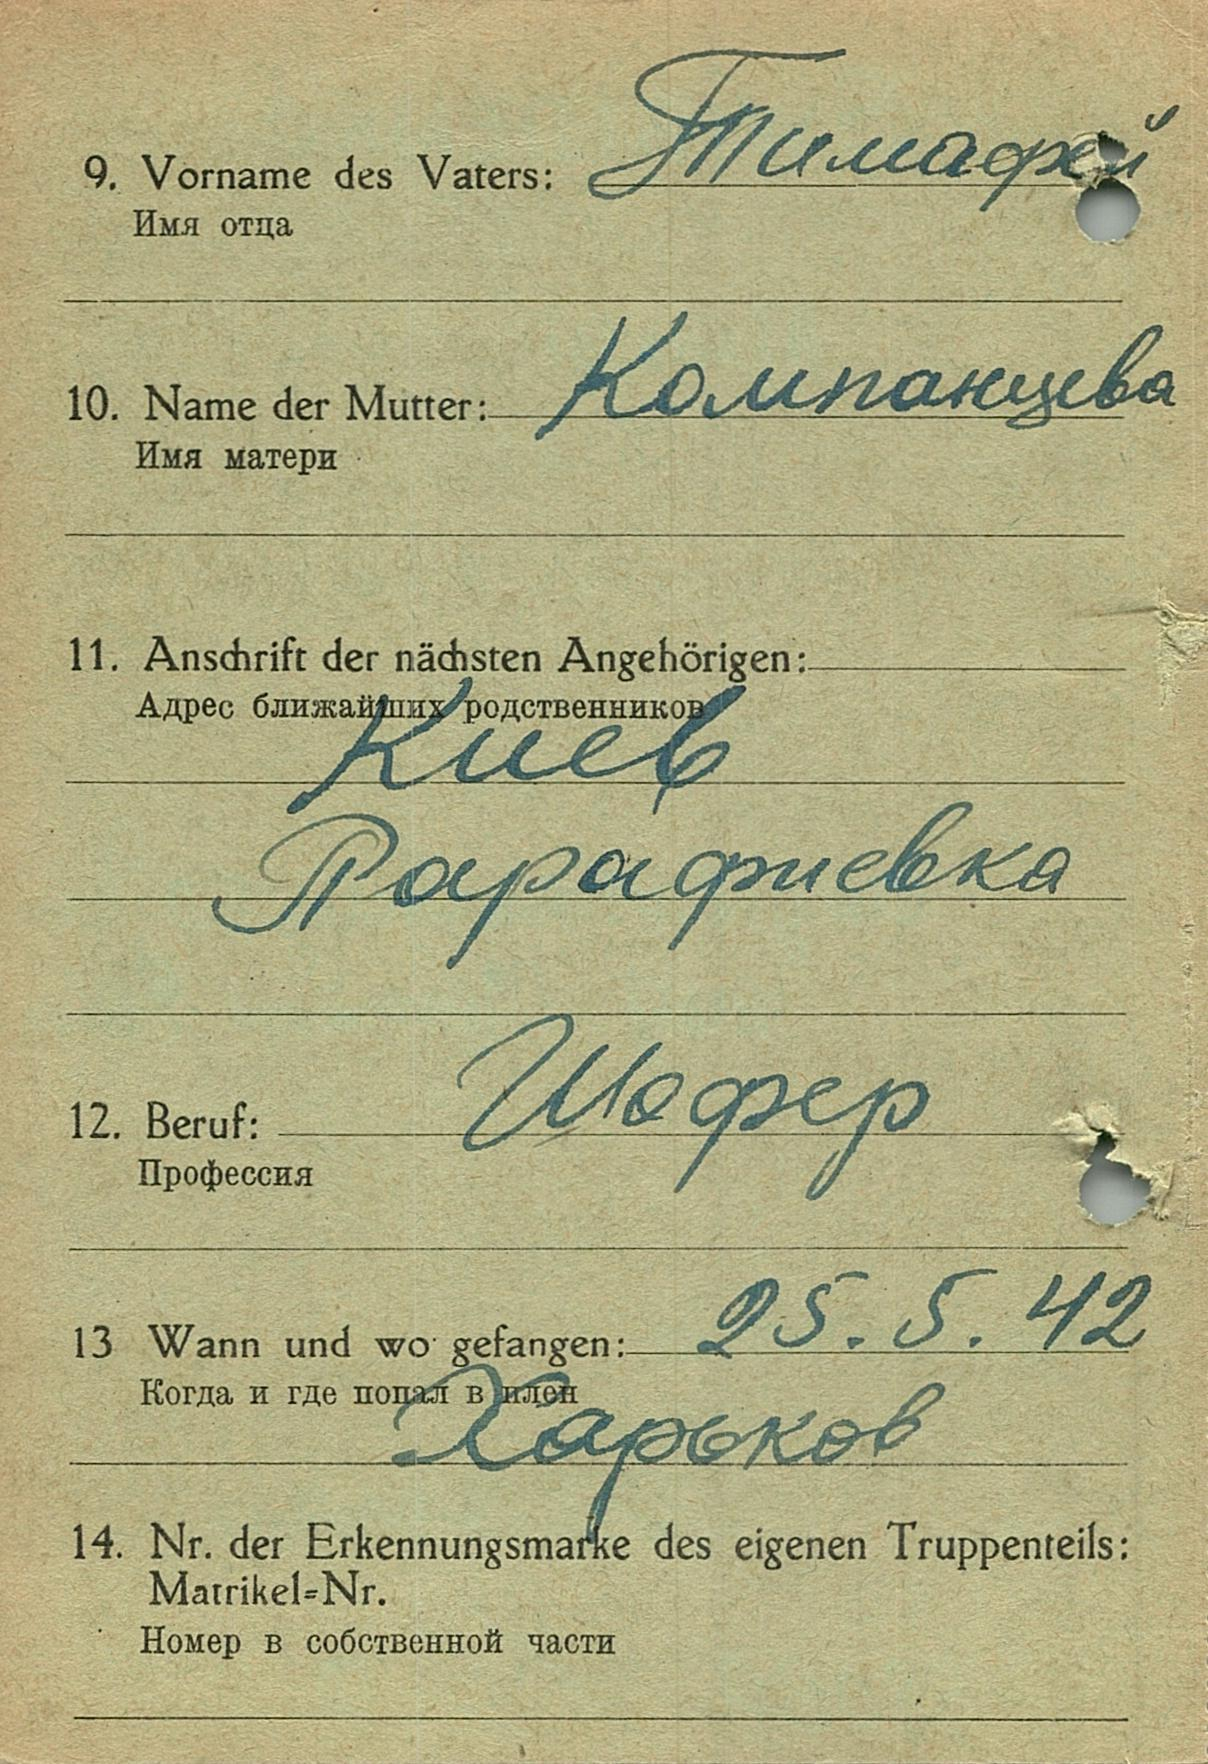 9. Vorname des Vaters: Тимафей
Имя отца
10. Name der Mutter: Компанцева
Имя матери
11. Anschrift der nächsten Angehörigen:
Адрес ближайших родственников
Киев
Парафиевка
12. Beruf: Шофер
Профессия
13 Wann und wo gefangen: 25.5.42
Когда и где попал в плен
Харьков
14. Nr. der Erkennungsmarke des eigenen Truppenteils:
Matrikel=Nr.
Номер в собственной части